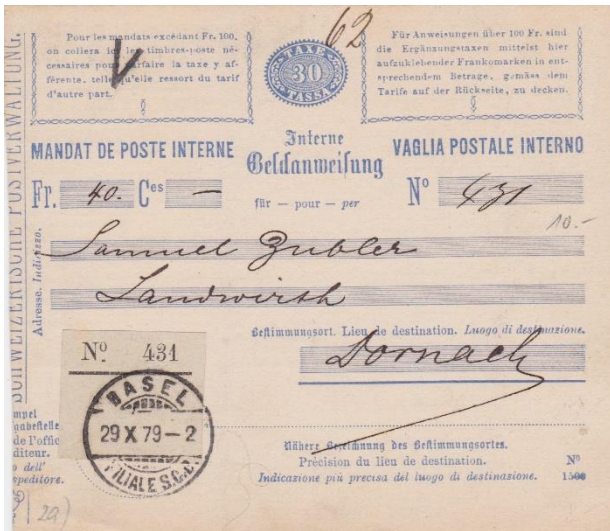 Pour les mandats excédant Fr. 100.
on collera ici les timbres-poste né-
cessaires pour parfaire la taxe y af-
férente, telle qu'elle ressort du tarif
d'autre part.
V
62
TAXE
30
TASSA
Für Anweisungen über 100 Fr. sind
die Ergänzungstaxen mittelst hier
aufzuklebender Frankomarken in ent-
sprechendem Betrage, gemäss dem
Tarife auf der Rückseite, zu decken.
SCHWEIZERISCHE POSTVERWALTUNG.
MANDAT DE POSTE INTERNE
Interne
Geldanweisung
VAGLIA POSTALE INTERNO
Fr. 40. Ces —
für — pour — per
No 431
10.-
Adresse. Indirizzo.
Samuel Zubler
Landwirth
Bestimmungsort. Lieu de destination. Luogo di destinazione.
Dornach
No 431
BASEL
29 X 79 – 2
FILIALE S.C.B.
mpel
gabestelle
de l'offic
diteur.
o dell'
peditore.
Nähere Bezeichnung des Bestimmungsortes.
Précision du lieu de destination.
Indicazione più precisa del luogo di destinazione.
No
1500
29)